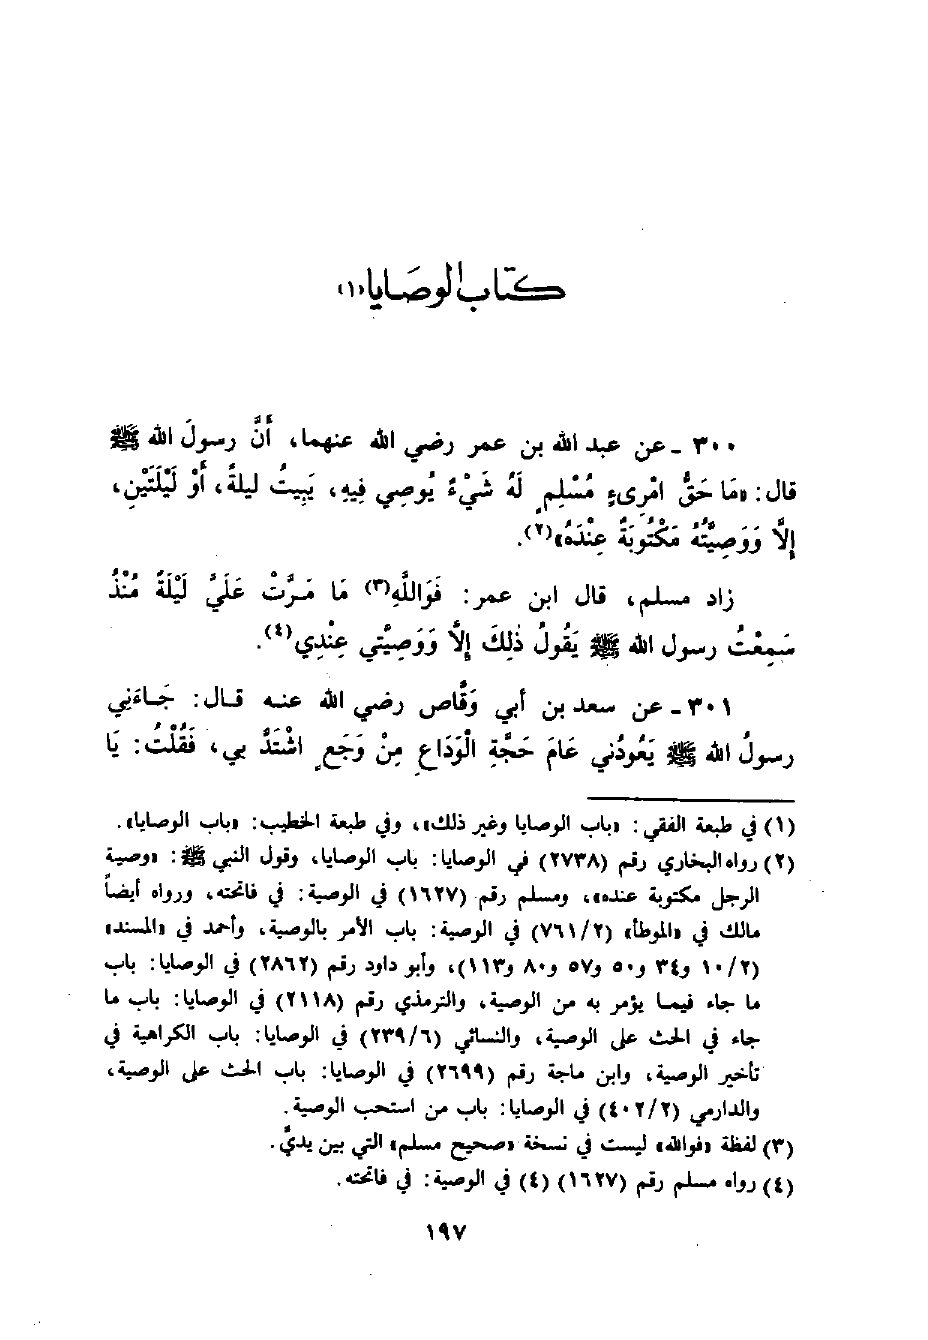 كتاب الوصايا(١)
٣٠٠ ـ عن عبد الله بن عمر رضي الله عنهما، أَنَّ رسولَ الله ﷺ
قال: «مَا حَقُّ امْرِىءٍ مُسْلِمٍ لَهُ شَيْءٌ يُوصِي فِيهِ، يَبِيتُ ليلةً، أَوْ لَيْلَتَيْنِ،
إِلَّا وَوَصِيَّتُهُ مَكْتُوبَةٌ عِنْدَهُ»(٢).
زاد مسلم، قال ابن عمر: فَوَاللَّهِ(٣) مَا مَرَّتْ عَلَيَّ لَيْلَةٌ مُنْذُ
سَمِعْتُ رسول الله ﷺ يَقُولُ ذٰلِكَ إِلَّا وَوَصِيَّتي عِنْدِي(٤).
٣٠١ ـ عن سعد بن أبي وَقَّاص رضي الله عنه قال: جَاءَنِي
رسولُ الله ﷺ يَعُودُني عَامَ حَجَّةِ الْوَدَاعِ مِنْ وَجَعٍ اشْتَدَّ بي، فَقُلْتُ: يَا
(١) في طبعة الفقي: «باب الوصايا وغير ذلك»، وفي طبعة الخطيب: «باب الوصايا».
(٢) رواه البخاري رقم (٢٧٣٨) في الوصايا: باب الوصايا، وقول النبي ﷺ: «وصية
الرجل مكتوبة عنده»، ومسلم رقم (١٦٢٧) في الوصية: في فاتحته، ورواه أيضاً
مالك في «الموطأ» (٧٦١/٢) في الوصية: باب الأمر بالوصية، وأحمد في «المسند»
(١٠/٢ و٣٤ و٥٠ و٥٧ و٨٠ و١١٣)، وأبو داود رقم (٢٨٦٢) في الوصايا: باب
ما جاء فيما يؤمر به من الوصية، والترمذي رقم (٢١١٨) في الوصايا: باب ما
جاء في الحث على الوصية، والنسائي (٢٣٩/٦) في الوصايا: باب الكراهية في
تأخير الوصية، وابن ماجة رقم (٢٦٩٩) في الوصايا: باب الحث على الوصية،
والدارمي (٤٠٢/٢) في الوصايا: باب من استحب الوصية.
(٣) لفظة «فوالله» ليست في نسخة «صحيح مسلم» التي بين يديَّ.
(٤) رواه مسلم رقم (١٦٢٧) (٤) في الوصية: في فاتحته.
١٩٧